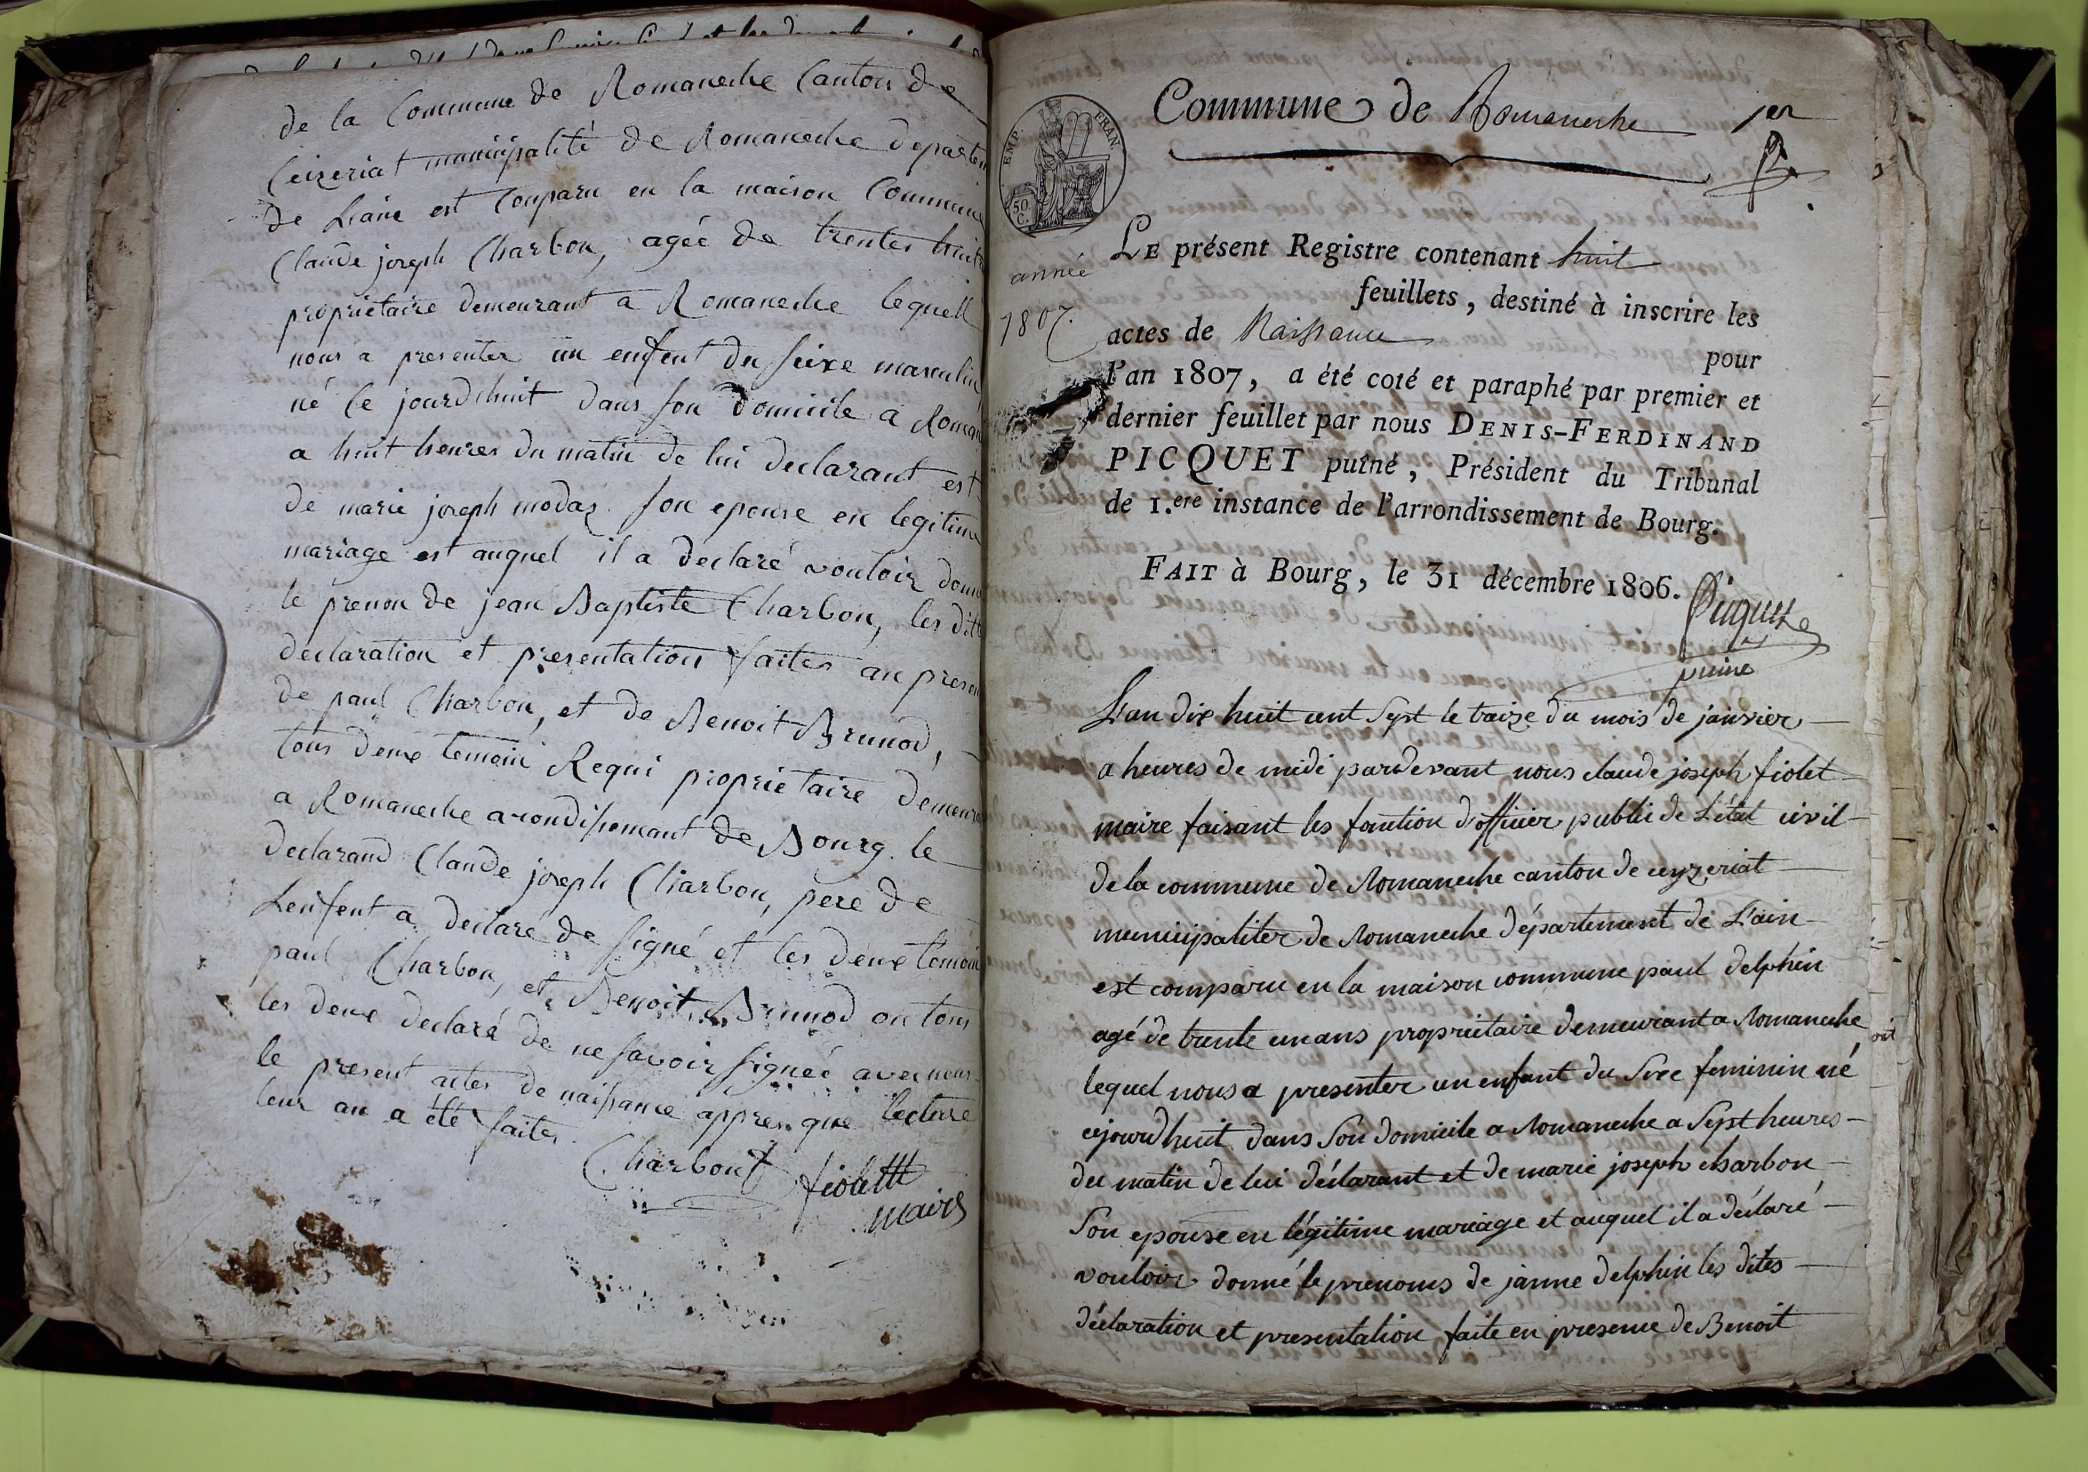 de la Commune de Romaneche Canton de
Ceizeriat municipalité de Romaneche departem
de Laine est Conparu en la maison Commune
Claude joseph Charbon, agée de trentes huit
proprietaire demeurant a Romaneche lequell
nous a presenter un enfent du seixe masculin
né le jourdhuit dans son domicile a Roman
a huit heures du matin de lui declarant est
de marie joseph modaz son epouse en legitime
mariage est auquel il a declaré vouloir donn
le prenon de jean Baptiste Charbon, les ditt
declaration et presentation faites an presen
de paul Charbon, et de Benoit Brunod,
tous deux temoin Requi proprietaire demeur
a Romaneche arondissemant de Bourg. le
declarand Claude joseph Charbon, pere de
Lenfent a declaré de signé et les deux temoin
paul Charbon, et Benoit Brunod on tous
les deux declaré de ne savoir signeé avec nous
le present actes de naissance appres que lecture
leur an a été faites
Charbon
fiolettt
maire
Commune de Romaneche 1er
EMP. FRAN.
50 C.
LE présent Registre contenant huit
année
feuillets, destiné à inscrire les
1807.
actes de Naissance pour
l'an 1807, a été coté et paraphé par premier et
dernier feuillet par nous DENIS-FERDINAND
PICQUET puîné, Président du Tribunal
de 1.ere instance de l'arrondissement de Bourg.
FAIT à Bourg, le 31 décembre 1806.
Picquet
puine
L'an dix huit cent sept le traize du mois de janvier
a heures de midi pardevant nous claude joseph fiolet
maire faisant les fonction d'officier public de L'état civil
de la commune de Romaneche canton de ceyzeriat
municipaliter de Romaneche département de L'ain
est comparu en la maison commune paul delphin
agé de trente unans proprietaire demeurant a Romaneche
lequel nous a presenter un enfant du sexe feminin né
cejourdhuit dans son domicile a Romaneche a sept heures
du matin de lui déclarant et de marie joseph charbon,
son epouse en légitime mariage et auquel il a déclaré
vouloir donné le prenoms de janne delphin les dites
déclaration et presentation faite en presence de Benoit